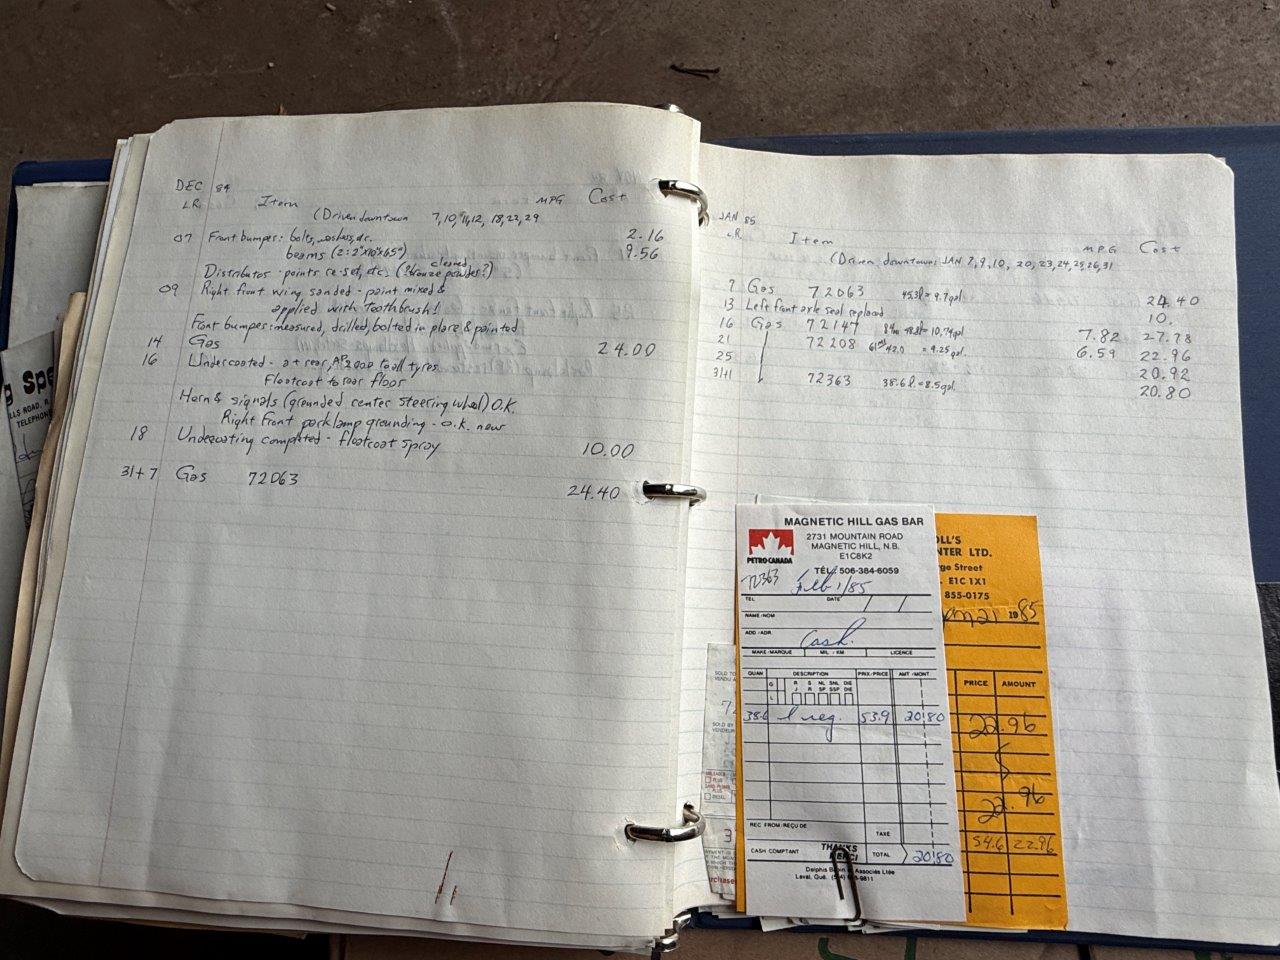 DEC 84
LR Item MPG Cost
(Driven downtown 7, 10, 11, 12, 18, 22, 29
07 Front bumper: bolts, washers, etc. 2.16
beams (2: 2"x10"x65") 9.56
Distributor - points re-set, etc. (? bronze powder?)
cleaned
09 Right front wing sanded - paint mixed &
applied with toothbrush!
Front bumper: measured, drilled, bolted in place & painted
14 Gas 24.00
16 Undercoated - at rear, AP2000 to all tyres
Floatcoat to rear floor
Horn & signals (grounded center steering wheel) O.K.
Right front parklamp grounding - O.K. now
18 Undercoating completed - floatcoat spray 10.00
31+7 Gas 72063 24.40
JAN 85
LR Item MPG Cost
(Driven downtown: JAN 7, 9, 10, 20, 23, 24, 25, 26, 31
7 Gas 72063 45.3l = 9.9gal 24.40
13 Left front axle seal replaced 10.
16 Gas 72147 84m 48.8l = 10.74gal 7.82 27.78
21 72208 61m 42.0 = 9.25gal. 6.59 22.96
25 20.92
31+1 72363 38.6l = 8.5gal. 20.80
MAGNETIC HILL GAS BAR
2731 MOUNTAIN ROAD
MAGNETIC HILL, N.B.
E1C8K2
PETRO-CANADA
TÉL. 506-384-6059
72363 Feb 1/85
TEL. DATE
NAME/NOM
ADD/ADR. Cash
MAKE/MARQUE MIL/KM LICENCE
QUAN DESCRIPTION PRIX/PRICE AMT/MONT.
G R S NL SNL DIE
L J R SP SSP DIE
38.6 l reg. 53.9 20.80
REC FROM/REÇU DE
TAXE
CASH COMPTANT THANKS MERCI TOTAL 20.80
Associés Ltée
Laval, Qué.
OLL'S
NTER LTD.
ge Street
E1C 1X1
855-0175
21 1985
PRICE AMOUNT
22.96
22.96
54.6 22.96
SOLD TO
VENDU A
SOLD BY
VENDEUR
LLS ROAD, R.
TELEPHONE
g spe